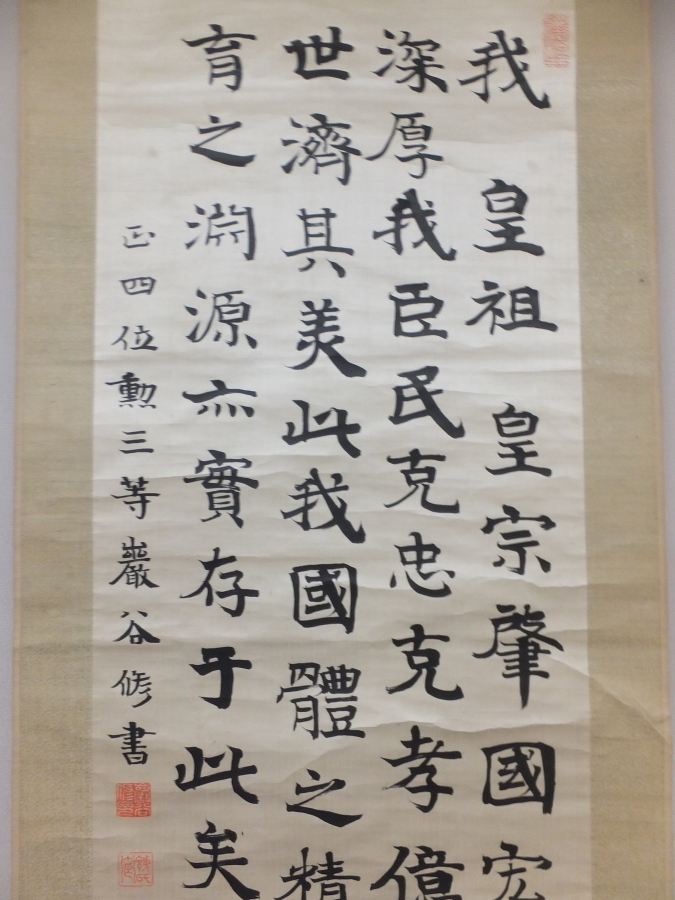 我 皇祖 皇宗肇國宏
深厚我臣民克忠克孝億
世濟其美此我國體之精
育之淵源亦實存于此矣
正四位勲三等巖谷修書